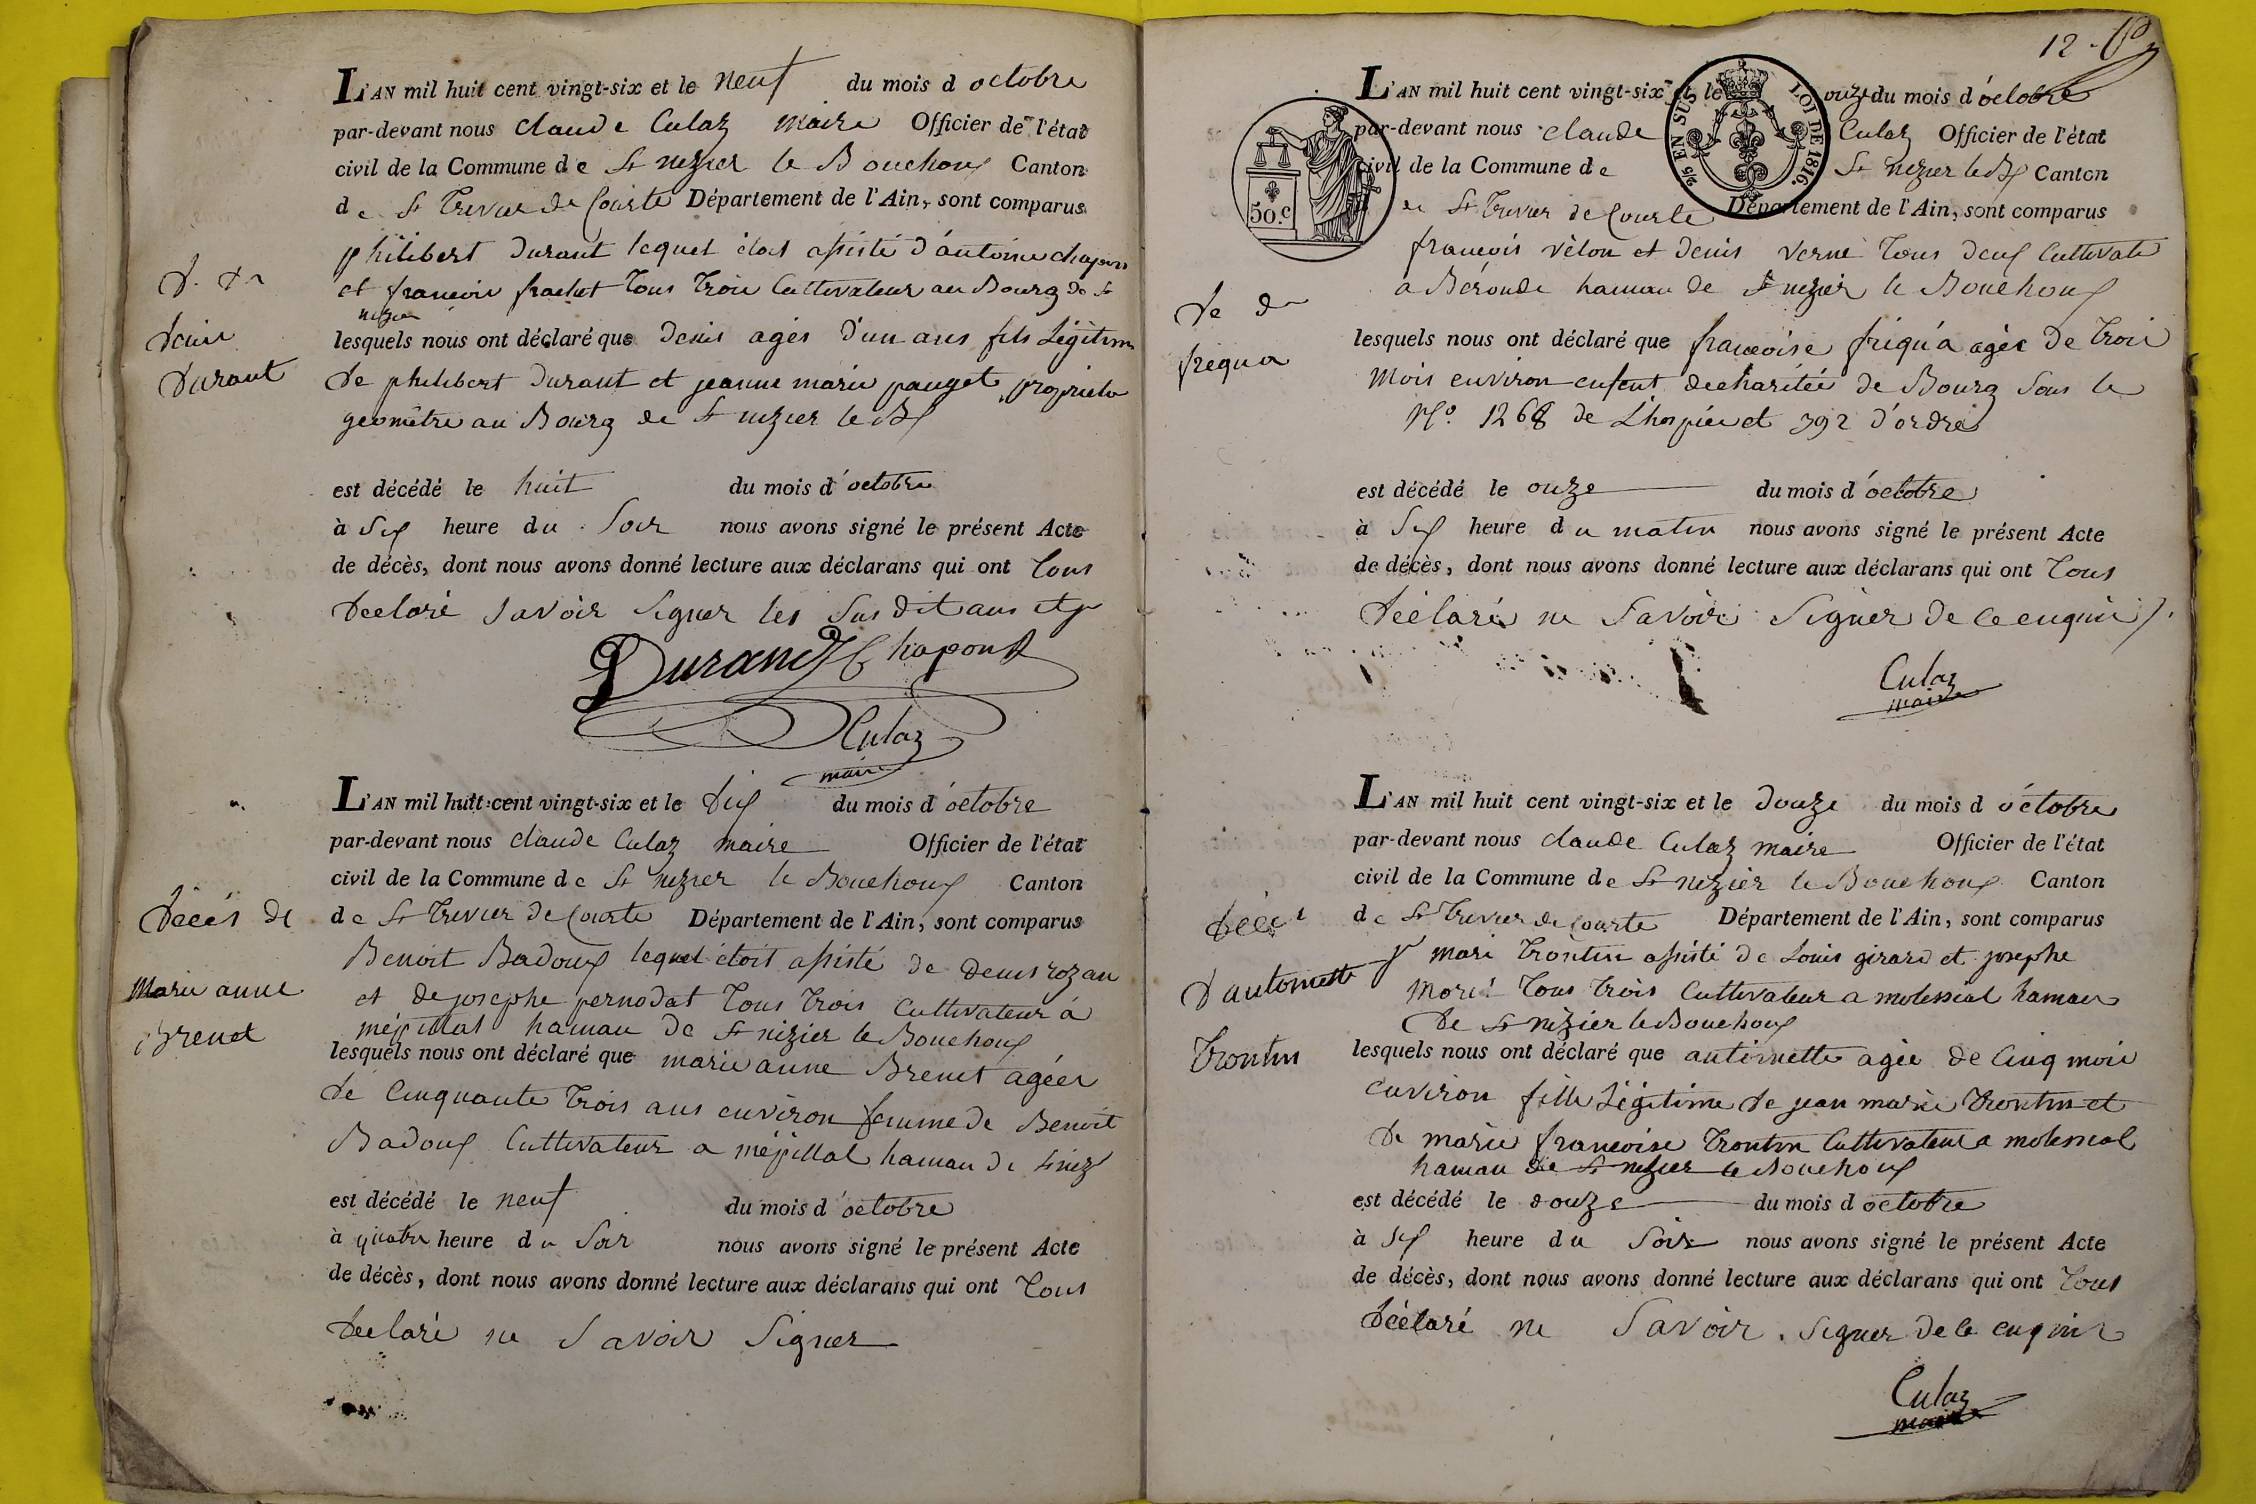 L'AN mil huit cent vingt-six et le neuf du mois d octobre
par-devant nous claude Culaz maire Officier de l'état
civil de la Commune de St nizier le Bouchoux Canton
de St Trivier de Courte Département de l'Ain, sont comparus
philibert Durant lequel étoit assisté d'antoine chapon
et francois frachet tous trois Cultivateur au Bourg de St
nizier
D. de
Denis
Durant
lesquels nous ont déclaré que Denis agés d'un ans fils Légitime
de philibert Durant et jeanne marie pauget propriéte
geomètre au Bourg de St nizier le Bx
est décédé le huit du mois d'octobre
à Six heure du Soir nous avons signé le présent Acte
de décès, dont nous avons donné lecture aux déclarans qui ont tous
Déclaré Savoir Signer les Susdit
Durand Chapont
Culaz
maire
L'AN mil huit cent vingt-six et le Dix du mois d'octobre
par-devant nous claude Culaz maire Officier de l'état
civil de la Commune de St nizier le Bouchoux Canton
Décès de
Marie anne
Brenet
de St Trivier de Courte Département de l'Ain, sont comparus
Benoit Badoux lequel étoit assisté de Denis rozan
et de josephe pernodat tous trois Cultivateur á
mépillat hamau de St nizier le Bouchoux
lesquels nous ont déclaré que marie anne Brenet agéer
de Cinquante trois ans environ femme de Benoit
Badoux Cultivateur a mépillat hamau de St niz
est décédé le neuf du mois d'octobre
à quatre heure du Soir nous avons signé le présent Acte
de décès, dont nous avons donné lecture aux déclarans qui ont tous
Déclaré ne Savoir Signer
12
L'AN mil huit cent vingt-six et le onze du mois d'octobre
par-devant nous claude Culaz Officier de l'état
civil de la Commune de St nizier le Bx Canton
de St Trivier de Courte Département de l'Ain, sont comparus
2/5 EN SUS LOI DE 1816.
50.c
francois vèlon et denis verne tous deux Cultivate
a Béronde hamau de St nizier le Bouchoux
De de
frequa
lesquels nous ont déclaré que francoise friqua agée de trois
Mois environ enfent decharitée de Bourg Sous le
No. 1268 de Lhospice et 392 d'ordre
est décédé le onze du mois d'octobre
à Six heure du matin nous avons signé le présent Acte
de décès, dont nous avons donné lecture aux déclarans qui ont tous
Déclaré ne Savoir Signer de ce enquis
Culaz
maire
L'AN mil huit cent vingt-six et le douze du mois d octobre
par-devant nous claude Culaz maire Officier de l'état
civil de la Commune de St nizier le Bouchoux Canton
Décès
D'antoinette
Trontin
de St Trivier de Courte Département de l'Ain, sont comparus
mari Trontin assisté de Louis girard et josephe
Morel tous trois Cultivateur a molessiat hamau
de St nizier le Bouchoux
lesquels nous ont déclaré que antoinette agée de Cinq mois
environ fille Légitime de jean marie Trontin et
de marie francoise Trontin Cultivateur a molessiat
hamau de St nizier le Bouchoux
est décédé le douze du mois d octobre
à Six heure du Soir nous avons signé le présent Acte
de décès, dont nous avons donné lecture aux déclarans qui ont tous
Déclaré ne Savoir Signer de ce enquis
Culaz
maire